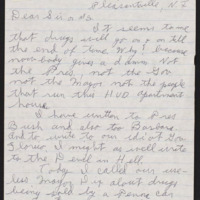 Pleasantville, N.J.
Dear Sir
It seems to me
that drugs will go on on till
the end of time. Why? because
now-body gives a damn. Not
the Pres, not the Gov
not the Mayor not the people
that run this HUD apartment
house.
I have written to Pres
Bush and also too Barbara
and to
I might as well write
to the Devil in Hell.
Today I called our use-
less Mayor up about drugs
being sold by a